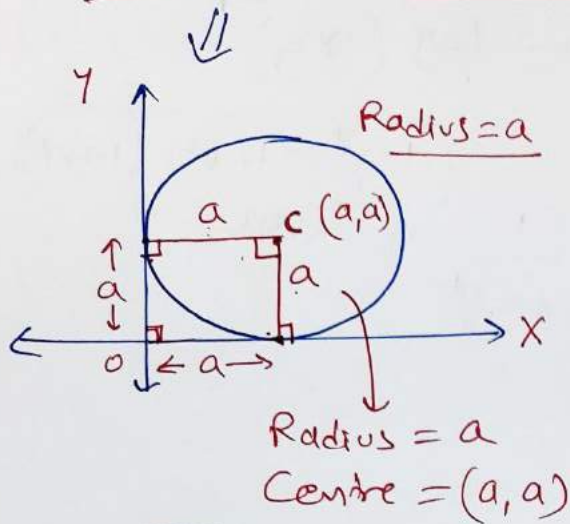 Y
Radius = a
a
C (a,a)
a
a
O
← a →
X
Radius = a
Centre = (a, a)